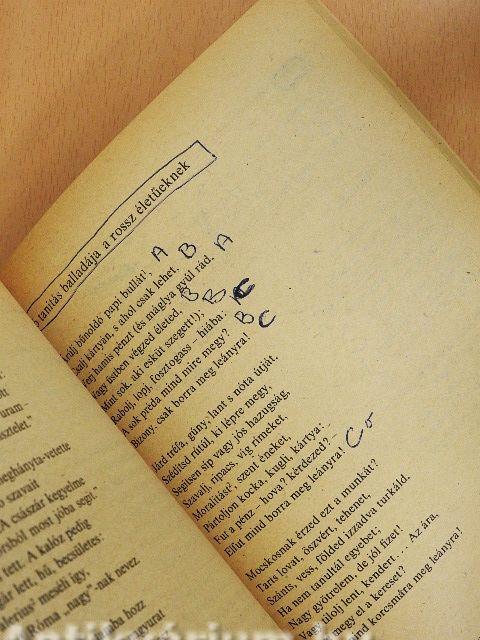 tanítás balladája a rossz életűeknek
bűnoldó papi bullát¹, A
kártyán, s ahol csak lehet, B
hamis pénzt (és máglya gyúl rád. A
Vagy üstben végzed életed, B
Mint sok, aki esküt szegett!); B
Rabolj, lopj, fosztogass – hiába: C
A sok préda mind mire megy? B
Bizony, csak borra meg leányra! C
tréfa, gúny; lant s nóta útját,
Szédítsd rútúl, ki lépre megy,
Segítsen síp vagy jós hazugság,
Szavalj, ripacs, víg rímeket,
Moralitást², szent éneket,
Pártoljon kocka, kugli, kártya:
Fut a pénz – hova? kérdezed? –
Elfut mind borra meg leányra! C
Mocskosnak érzed ezt a munkát?
Tarts lovat, öszvért, tehenet,
Szánts, vess, földed izzadva turkáld,
Ha nem tanultál egyebet;
Nagy gyötrelem, de jól fizet!
Vagy tilolj lent, kendert...: Az ára,
megy el a kereset?
ind korcsmára meg leányra!
uram.
meghányta-vetette
szavait
A császár kegyelme
most jóba segt."
tett. A kalóz pedig
lett, hű, becsületes:
meséli így,
Róma „nagy"-nak nevez
hozz